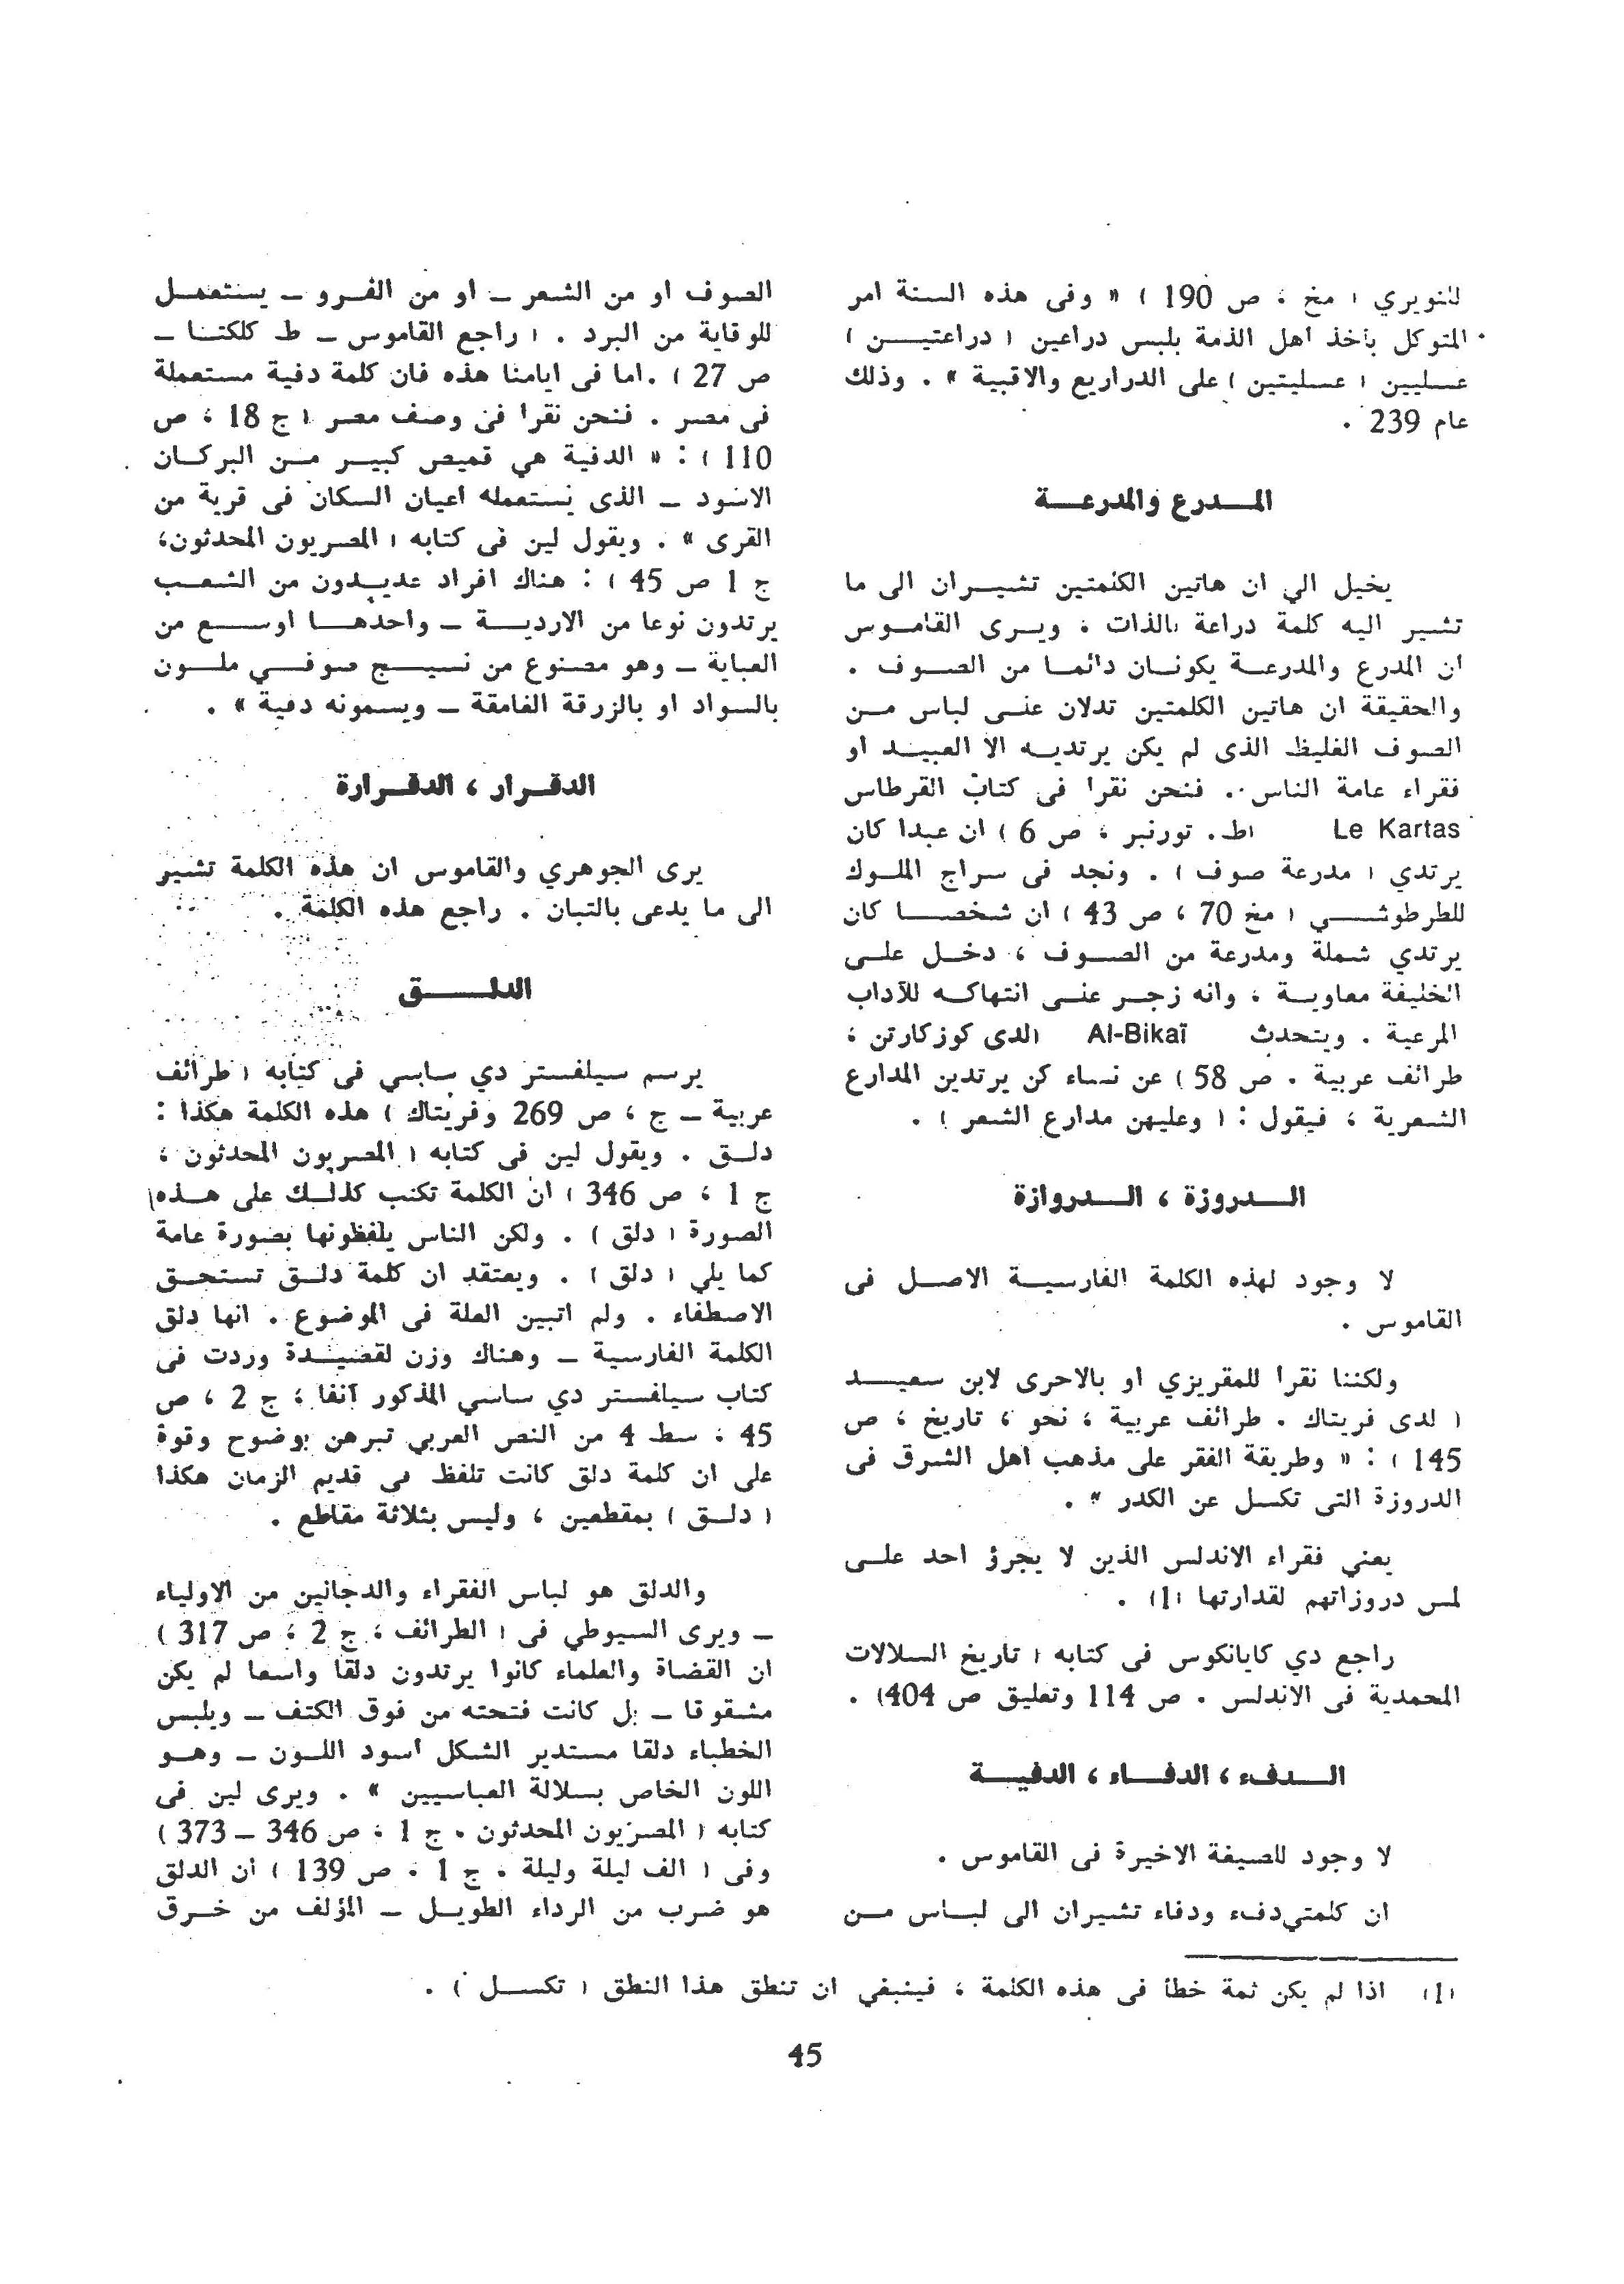 للنويري ( مخ ، ص 190 ) « وفى هذه السنة امر
المتوكل بأخذ اهل الذمة بلبس دراعين ( دراعتيـــن )
عسليين ( عسليتين ) على الدراريع والاقبية » . وذلك
عام 239 .
المــدرع والمدرعــة
يخيل الي ان هاتين الكلمتين تشيــران الى ما
تشير اليه كلمة دراعة بالذات ، ويــرى القامـوس
ان المدرع والمدرعــة يكونــان دائمــا من الصــوف .
والحقيقة ان هاتين الكلمتين تدلان علــى لباس مــن
الصوف الغليظ الذى لم يكن يرتديــه الا العبيــد او
فقراء عامة الناس . فنحن نقرا فى كتاب القرطاس
Le Kartas (ط. تورنبر ، ص 6 ) ان عبدا كان
يرتدي ( مدرعة صوف ) . ونجد فى سراج الملــوك
للطرطوشــي ( مخ 70 ، ص 43 ) ان شخصــا كان
يرتدي شملة ومدرعة من الصــوف ، دخــل علــى
الخليفة معاويــة ، وانه زجــر علــى انتهاكــه للآداب
المرعية . ويتحدث Al-Bikaï (لدى كوزكارتن ،
طرائف عربية . ص 58 ) عن نساء كن يرتدين المدارع
الشعرية ، فيقول : ( وعليهن مدارع الشعر ) .
الــدروزة ، الــدروازة
لا وجود لهذه الكلمة الفارسيــة الاصــل فى
القاموس .
ولكننا نقرا للمقريزي او بالاحرى لابن سعيــد
( لدى فريتاك . طرائف عربية ، نحو ، تاريخ ، ص
145 ) : « وطريقة الفقر على مذهب اهل الشرق فى
الدروزة التى تكسل عن الكدر » .
يعني فقراء الاندلس الذين لا يجرؤ احد علــى
لمس دروزاتهم لقدارتها (1) .
راجع دي كايانكوس فى كتابه ( تاريخ السلالات
المحمدية فى الاندلس . ص 114 وتعليق ص 404) .
الــدفء ، الدفــاء ، الدفيــة
لا وجود للصيغة الاخيرة فى القاموس .
ان كلمتي دفء ودفاء تشيران الى لبــاس مــن
الصوف او من الشعر ــ او من الفــرو ــ يستعمــل
للوقاية من البرد . ( راجع القاموس ــ ط كلكتــا ــ
ص 27 ) . اما فى ايامنا هذه فان كلمة دفية مستعملة
فى مصر . فنحن نقرا فى وصف مصر ( ج 18 ، ص
110 ) : « الدفية هي قميص كبيــر مــن البركــان
الاسود ــ الذى يستعمله اعيان السكان فى قرية من
القرى » . ويقول لين فى كتابه ( المصريون المحدثون،
ج 1 ص 45 ) : هناك افراد عديدون من الشعــب
يرتدون نوعا من الارديــة ــ واحدهــا اوســع من
العباية ــ وهو مصنوع من نسيــج صوفــي ملــون
بالسواد او بالزرقة الغامقة ــ ويسمونه دفية » .
الدقــرار ، الدقــرارة
يرى الجوهري والقاموس ان هذه الكلمة تشير
الى ما يدعى بالتبان . راجع هذه الكلمة .
الدلــــق
يرسم سيلفستر دي ساسي فى كتابه ( طرائف
عربية ــ ج ، ص 269 وفريتاك ) هذه الكلمة هكذا :
دلــق . ويقول لين فى كتابه ( المصريون المحدثون ،
ج 1 ، ص 346 ) ان الكلمة تكتب كذلــك على هــذه
الصورة ( دلق ) . ولكن الناس يلفظونها بصورة عامة
كما يلي ( دلق ) . ويعتقد ان كلمة دلــق تستحــق
الاصطفاء . ولم اتبين العلة فى الموضوع . انها دلق
الكلمة الفارسية ــ وهناك وزن لقصيــدة وردت فى
كتاب سيلفستر دي ساسي المذكور آنفا ، ج 2 ، ص
45 ، سط 4 من النص العربي تبرهن بوضوح وقوة
على ان كلمة دلق كانت تلفظ فى قديم الزمان هكذا
( دلــق ) بمقطعين ، وليس بثلاثة مقاطع .
والدلق هو لباس الفقراء والدجالين من الاولياء
ــ ويرى السيوطي فى ( الطرائف ، ج 2 ، ص 317 )
ان القضاة والعلماء كانوا يرتدون دلقا واسعا لم يكن
مشقوقا ــ بل كانت فتحته من فوق الكتف ــ ويلبس
الخطباء دلقا مستدير الشكل اسود اللــون ــ وهــو
اللون الخاص بسلالة العباسيين » . ويرى لين فى
كتابه ( المصريون المحدثون . ج 1 ، ص 346 ــ 373 )
وفى ( الف ليلة وليلة . ج 1 . ص 139 ) ان الدلق
هو ضرب من الرداء الطويــل ــ المؤلف من خــرق
(1) اذا لم يكن ثمة خطأ فى هذه الكلمة ، فينبغي ان تنطق هذا النطق ( تكســل ) .
45